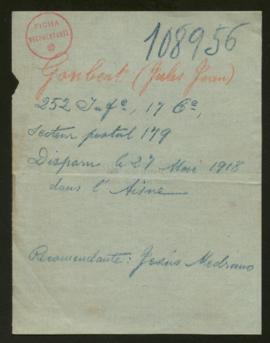 FICHA
DOCUMENTADA
108956
Gonbert (Jules Jean)
252 Infª, 17 Cª,
Secteur postal 179
Disparu le 27 Mai 1918
dans l'Aisne
Recomendante: Jesús Medrano